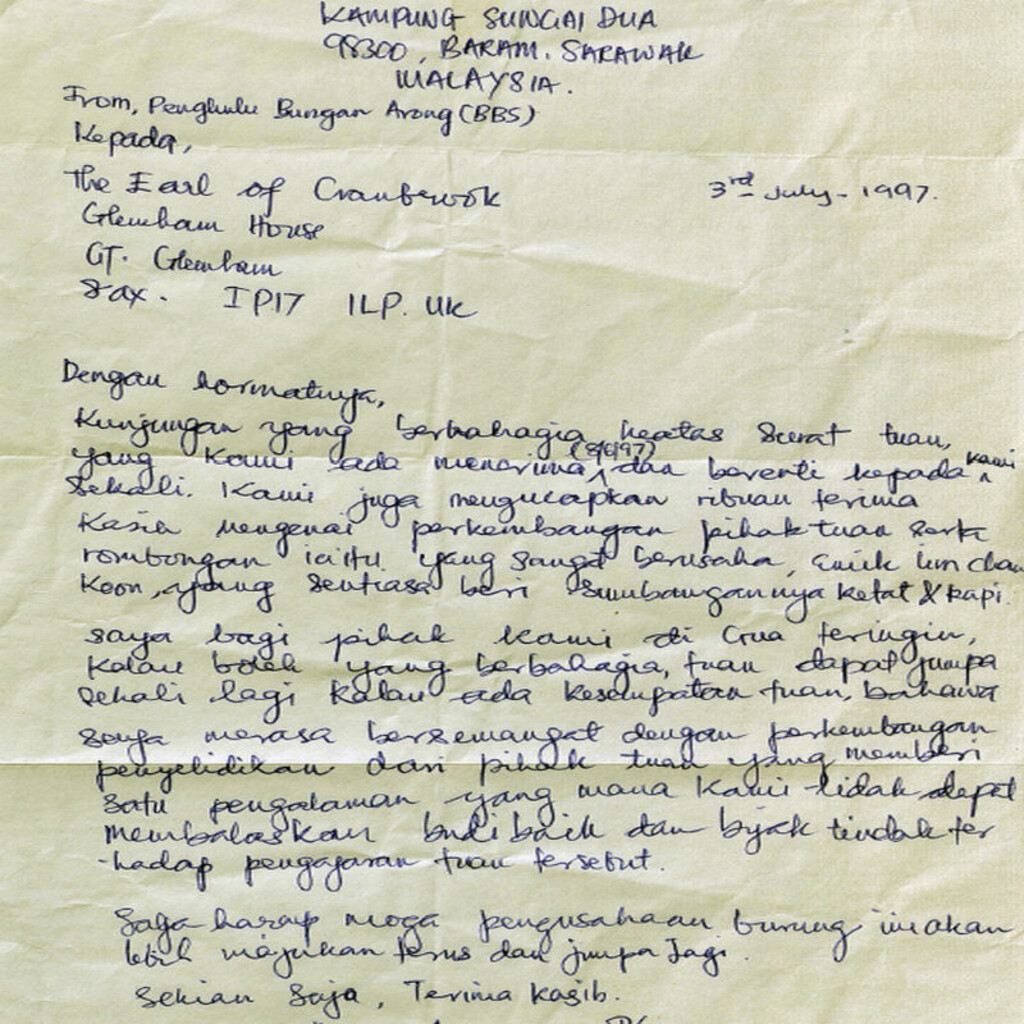 KAMPUNG SUNGAI DUA
98300, BARAM. SARAWAK
MALAYSIA.
From, Penghulu Bungan Arong (BBS)
Kepada,
The Earl of Cranbrook
3rd July - 1997.
Glemham House
GT. Glemham
Sax. IP17 1LP. UK
Dengan hormatnya,
Kunjungan yang berbahagia keatas surat tuan,
yang kami ada menerima (8/6/97) dan bererti kepada kami
sekali. Kami juga mengucapkan ribuan terima
Kasih mengenai perkembangan pihak tuan serta
rombongan iaitu yang sangat berusaha, Encik Lim Chan
Koon, yang sentiasa beri sumbangannya ketat & rapi.
saya bagi pihak kami di teringin,
kalau boleh yang berbahagia, tuan dapat jumpa
sekali lagi kalau ada kesempatan tuan, bahawa
saya merasa bersemangat dengan perkembangan
penyelidikan dari pihak tuan yang memberi
satu pengalaman yang mana kami tidak dapat
membalaskan budi baik dan bijak tindak ter
-hadap pengajaran tuan tersebut.
Saya harap moga pengusahaan burung ini akan
lebih majukan terus dan jumpa lagi.
Sekian Saja, Terima Kasih.